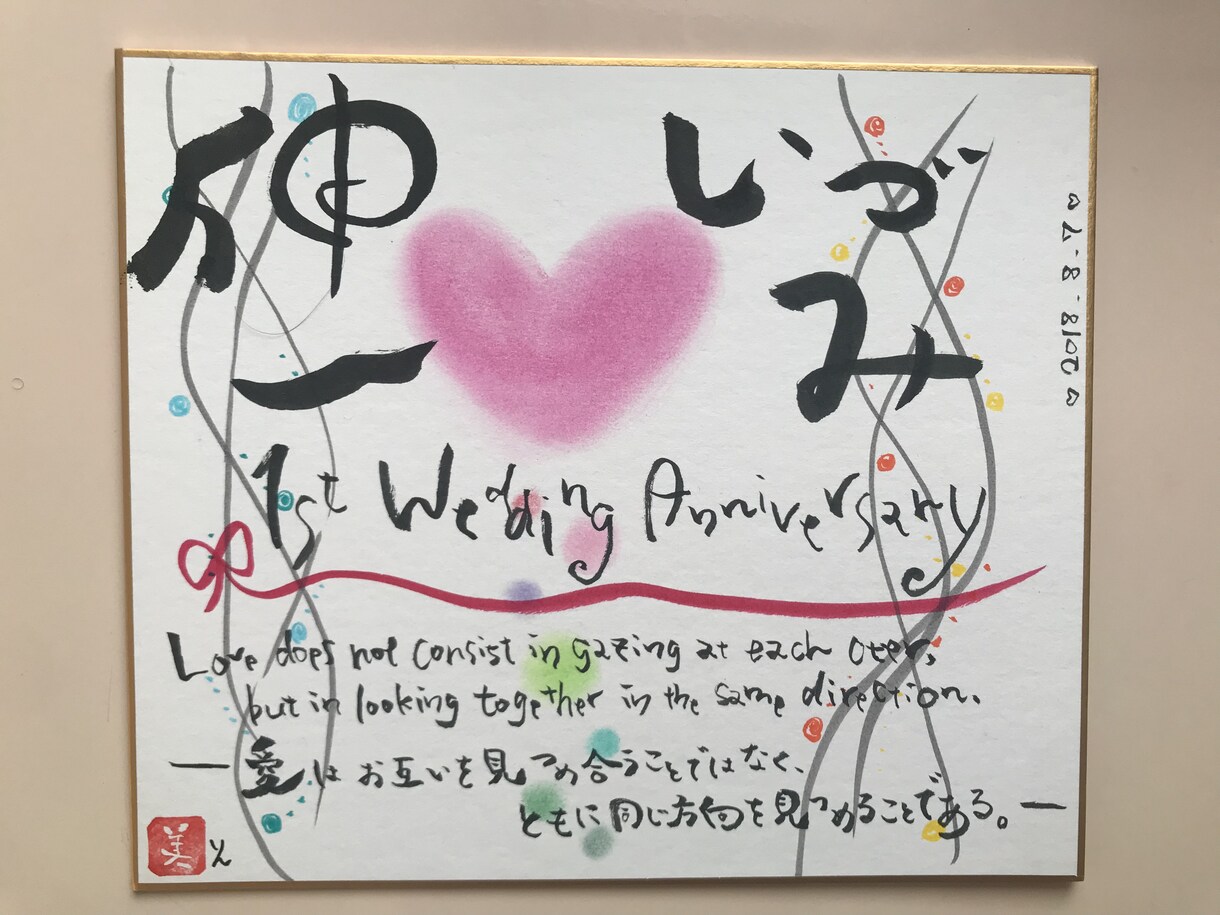 伸一
いづみ
♡ 2018.8.7 ♡
1st Wedding Anniversary
Love does not consist in gazing at each oter,
but in looking together in the same direction.
―愛は お互いを見つめ合うことではなく、
ともに同じ方向を見つめることである。―
美